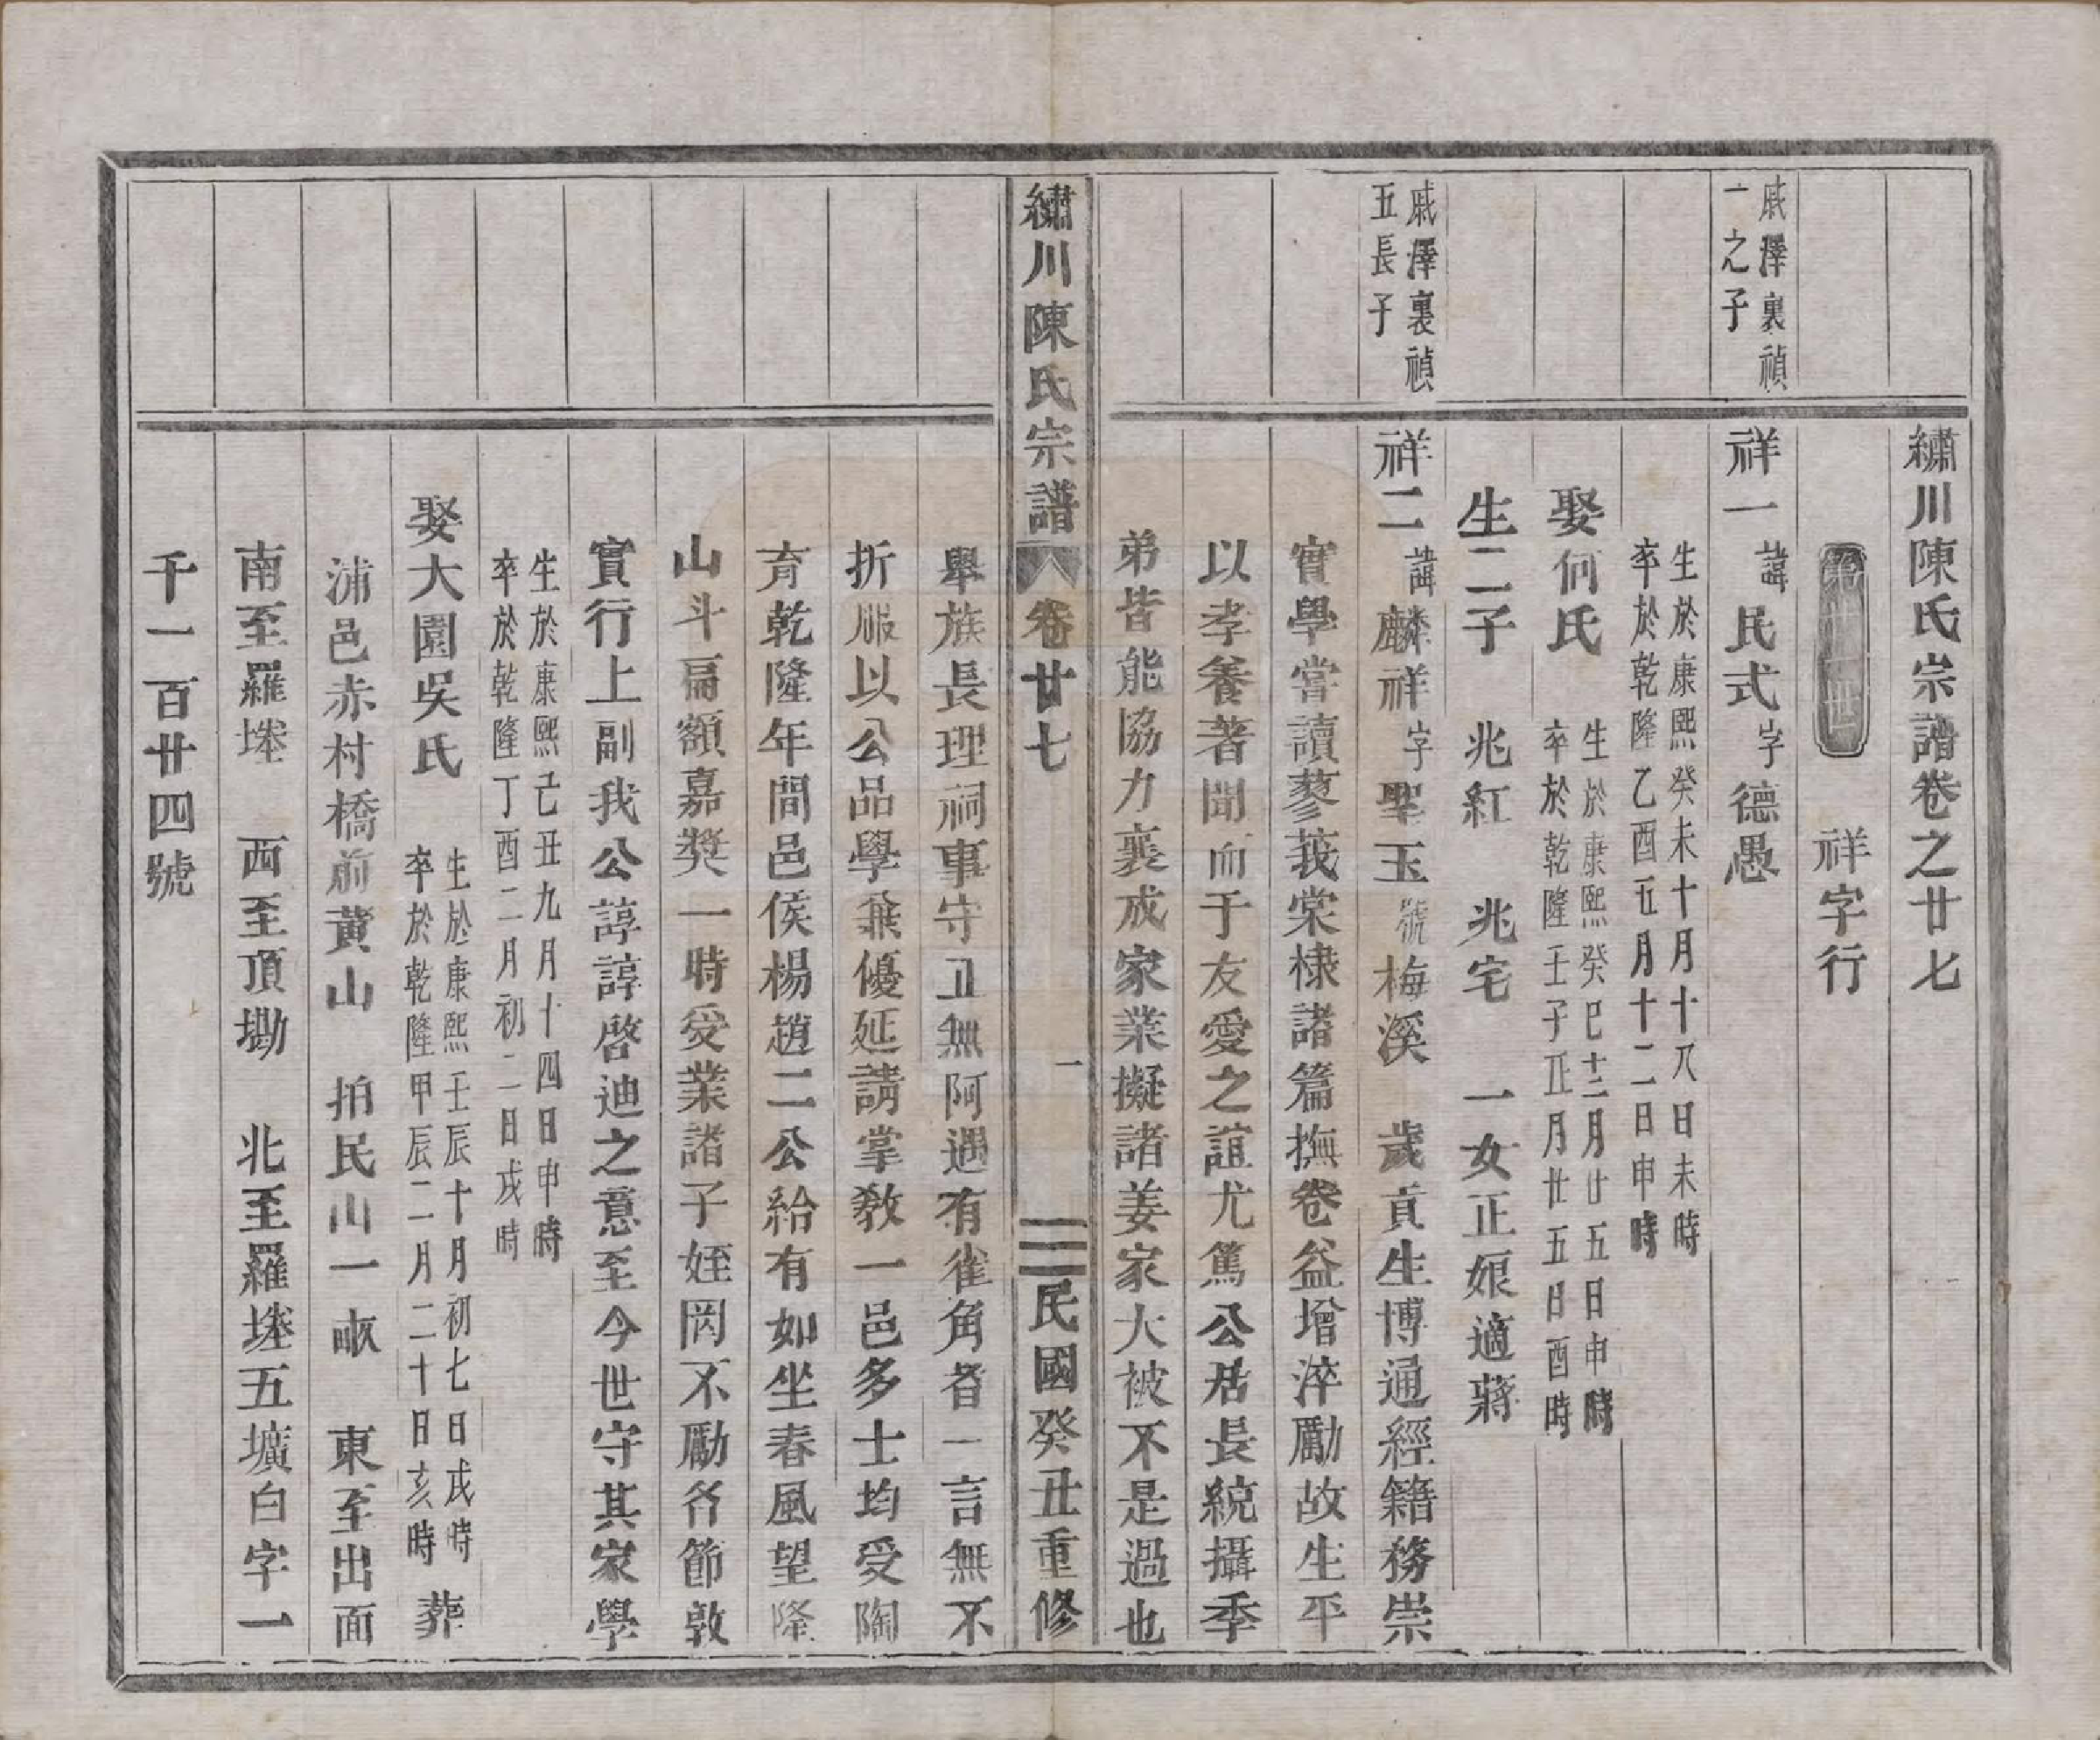 繡川陳氏宗譜卷之廿七
第廿一世 祥字行
戚澤裏禎
一之子
祥一 諱民式 字德愚
生於康熙癸未十月十八日未時
卒於乾隆乙酉五月十二日申時
娶何氏
生於康熙癸巳十二月廿五日申時
卒於乾隆壬子正月廿五日酉時
生二子 兆紅 兆宅 一女正娘適蔣
戚澤裏禎
五長子
祥二 諱麟祥 字聖玉 號梅溪 歲貢生博通經籍務崇
實學當讀蓼莪棠棣諸篇撫卷益增淬勵故生平
以孝養著聞而于友愛之誼尤篤公居長統攝季
弟皆能協力襄成家業擬諸姜家大被不是過也
繡川陳氏宗譜 卷廿七 一 民國癸丑重修
舉族長理祠事守正無阿遇有雀角者一言無不
折服以公品學兼優延請掌教一邑多士均受陶
育乾隆年間邑侯楊趙二公給有如坐春風望隆
山斗扁額嘉獎一時受業諸子姪罔不勵名節敦
實行上副我公諄諄啓迪之意至今世守其家學
生於康熙己丑九月十四日申時
卒於乾隆丁酉二月初二日戌時
娶大園吳氏
生於康熙壬辰十月初七日戌時
卒於乾隆甲辰二月二十日亥時
葬
浦邑赤村橋前黃山 拍民山一畝 東至出面
南至羅塋 西至頂墈 北至羅塋五壙白字一
千一百廿四號